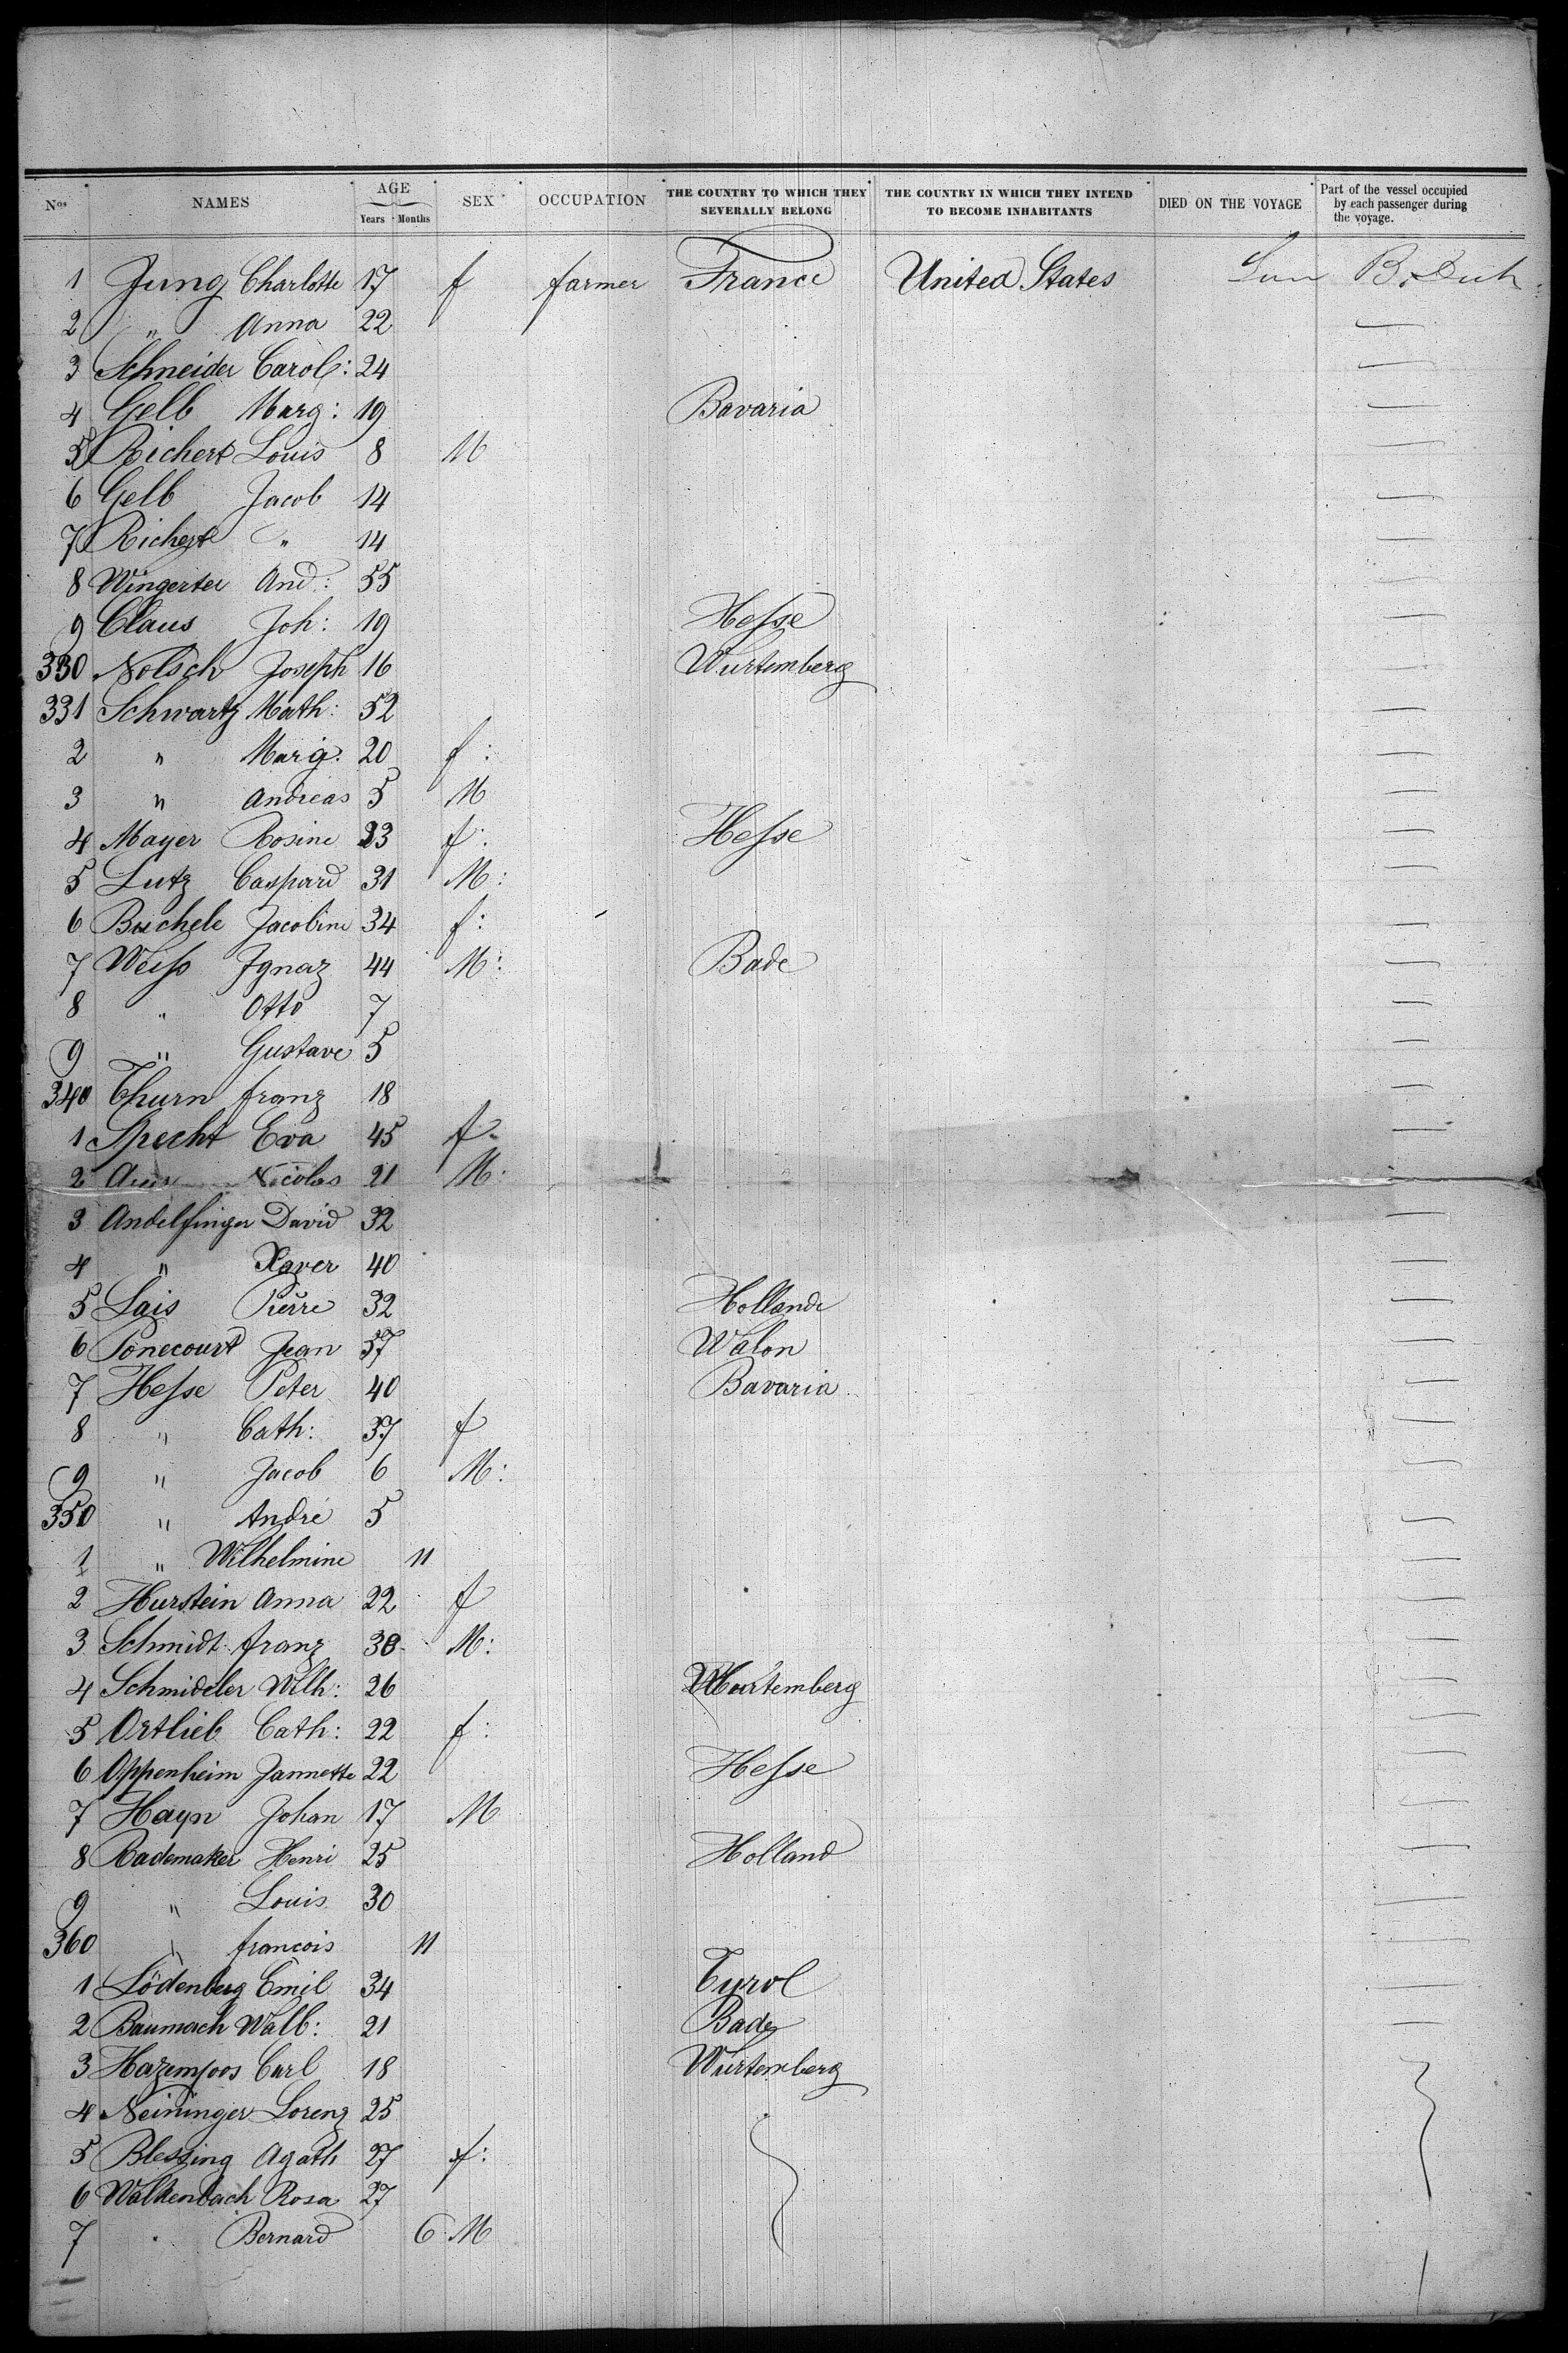 Nos NAMES AGE Years Months SEX OCCUPATION THE COUNTRY TO WHICH THEY SEVERALLY BELONG THE COUNTRY IN WHICH THEY INTEND TO BECOME INHABITANTS DIED ON THE VOYAGE Part of the vessel occupied by each passenger during the voyage.
1 Jung Charlotte 17 f farmer France United States B.
2 " Anna 22
3 Schneider Carol: 24
4 Gelb Marg: 19 Bavaria
5 Richert Louis 8 M
6 Gelb Jacob 14
7 Richert " 14
8 Wingerter And: 55
9 Claus Joh: 19 Hesse
330 Nolsch Joseph 16 Wurtemberg
331 Schwartz Math: 52
2 " Marg: 20 f:
3 " Andreas 5 M
4 Mayer Rosine 23 f: Hesse
5 Lutz Caspard 31 M:
6 Buchele Jacobine 34 f:
7 Weiss Ignaz 44 M: Bade
8 " Otto 7
9 " Gustave 5
340 Thurn franz 18
1 Specht Eva 45 f.
2 Nicolas 21 M.
3 Andelfinger David 32
4 " Xaver 40
5 Lais Pierre 32 Hollande
6 Ponecourt Jean 57 Walon
7 Hesse Peter 40 Bavaria
8 " Cath: 37 f
9 " Jacob 6 M:
350 " André 5
1 " Wilhelmine 11
2 Hurstein Anna 22 f
3 Schmidt franz 30 M:
4 Schmideler Wilh: 26 Wurtemberg
5 Ortlieb Cath: 22 f:
6 Oppenheim Jannette 22 Hesse
7 Hayn Johan 17 M
8 Rademaker Henri 25 Holland
9 " Louis 30
360 " francois 11
1 Lödenberg Emil 34 Tyrol
2 Baumach Walb: 21 Bade
3 Hazemjoos Carl 18 Wurtemberg
4 Neininger Lorenz 25
5 Blessing Agath 27 f:
6 Walkenbach Rosa 27
7 " Bernard 6 M